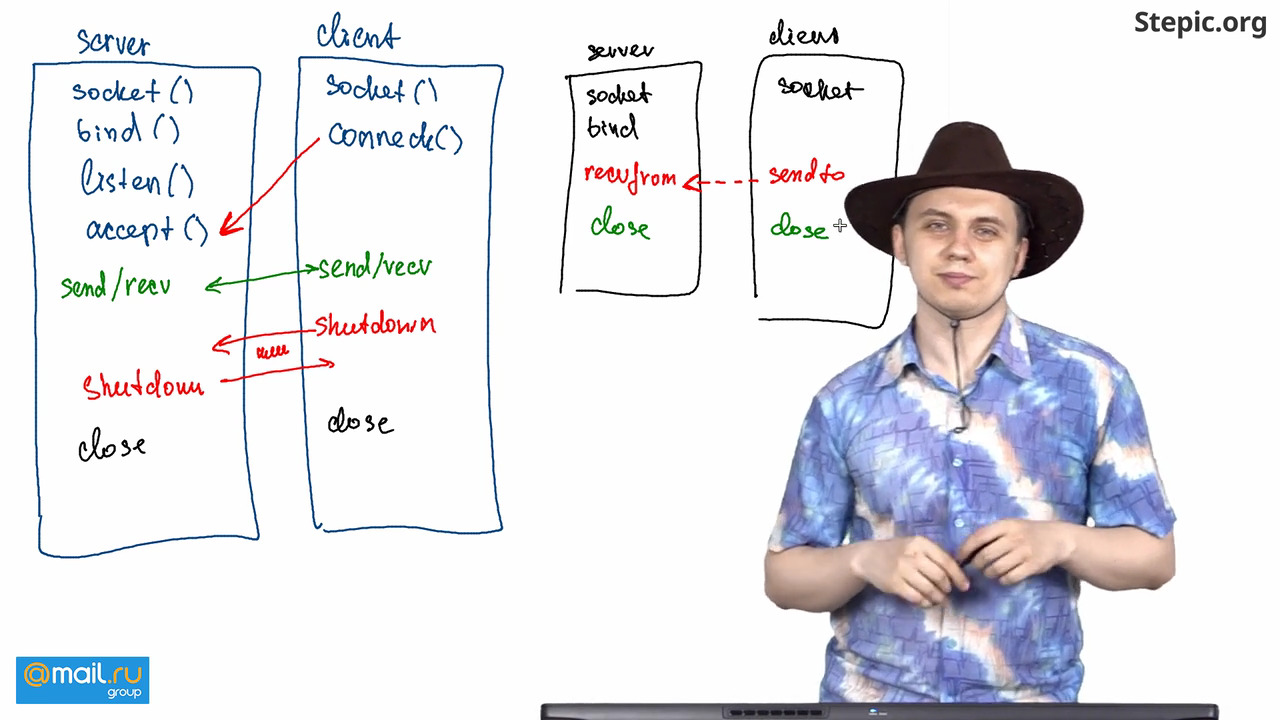 Stepic.org
server
socket()
bind()
listen()
accept()
send/recv
shutdown
close
client
socket()
connect()
send/recv
shutdown
close
server
socket
bind
recvfrom
close
client
socket
sendto
close
@mail.ru
group